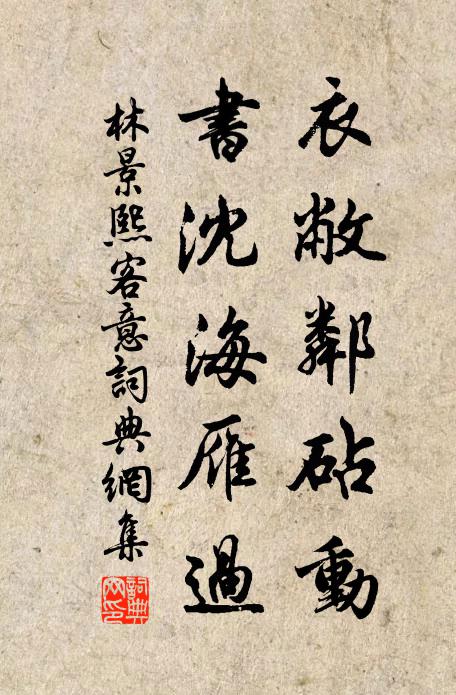 衣敝鄰砧動
書沈海雁過
林景熙客意詞典網集
詞典网印